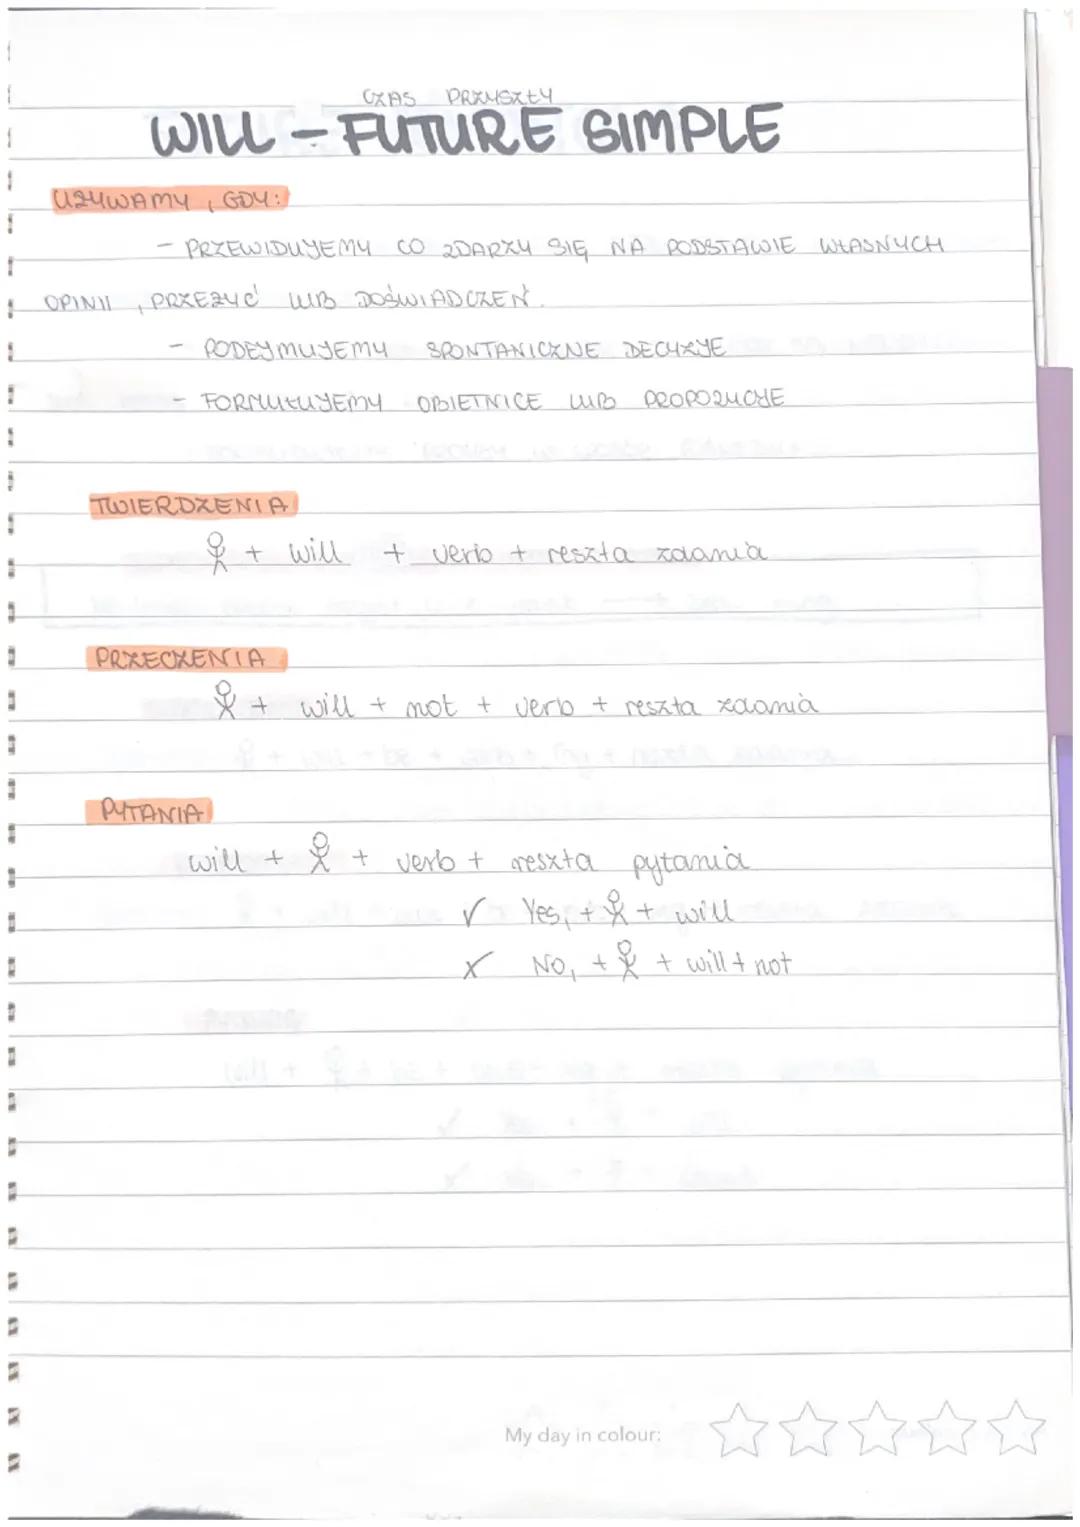 CZAS PRZYSZŁY
WILL – FUTURE SIMPLE
UŻYWAMY, GDY:
- PRZEWIDUJEMY CO ZDARZY SIĘ NA PODSTAWIE WŁASNYCH
OPINII, PRZEŻYĆ LUB DOŚWIADCZEŃ.
- PODEJMUJEMY SPONTANICZNE DECYZJE
- FORMUŁUJEMY OBIETNICE LUB PROPOZYCJE
TWIERDZENIA
+ will + verb + reszta zdania
PRZECZENIA
+ will + not + verb + reszta zdania
PYTANIA
will + + verb + reszta pytania
✓ Yes, + + will
x NO, + + will + not
My day in colour: